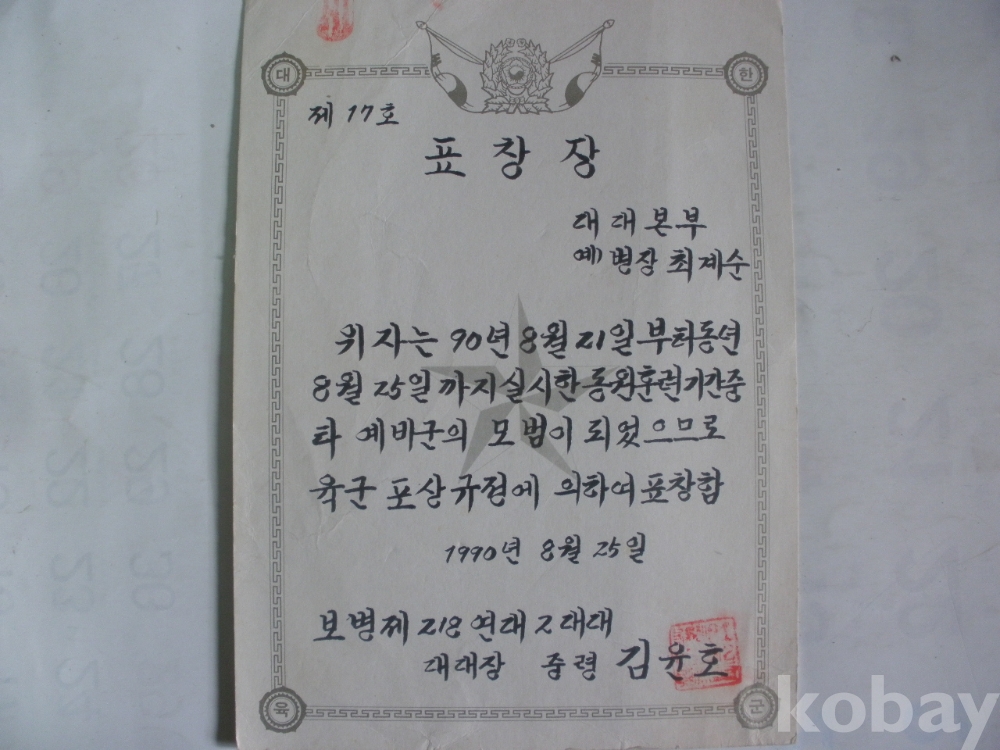 대 한
제 17호
표 창 장
대대본부
예) 병장 최계순
위 자는 90년 8월 21일 부터 동년
8월 25일 까지 실시한 동원훈련기간중
타 예비군의 모범이 되었으므로
육군 포상규정에 의하여 표창함
1990년 8월 25일
보병제 218 연대 2대대
대대장 중령 김윤호
육 군
kobay